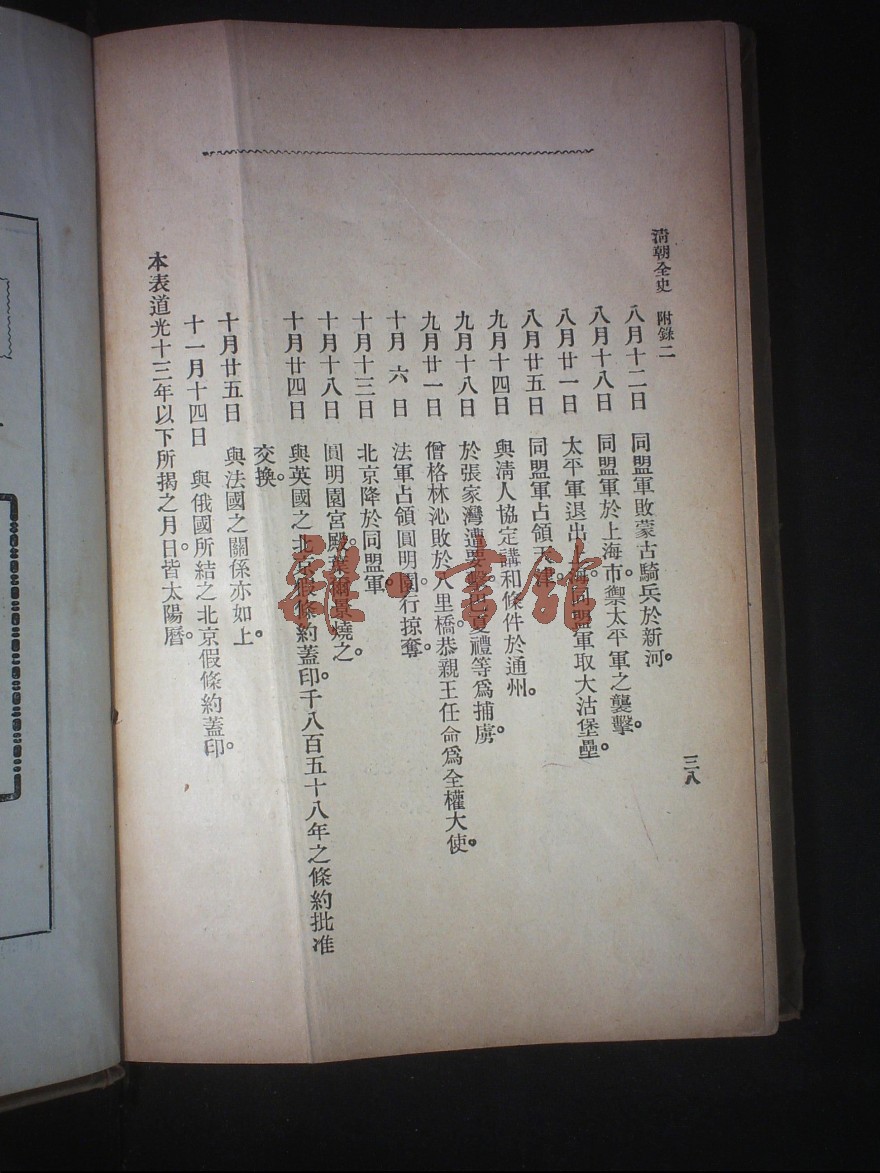 清朝全史 附錄二
三八
八月十二日 同盟軍敗蒙古騎兵於新河。
八月十八日 同盟軍於上海市禦太平軍之襲擊。
八月廿一日 太平軍退出上海同盟軍取大沽堡壘。
八月廿五日 同盟軍占領天津。
九月十四日 與淸人協定講和條件於通州。
九月十八日 於張家灣遭要擊巴夏禮等爲捕虜。
九月廿一日 僧格林沁敗於八里橋恭親王任命爲全權大使。
十月六日 法軍占領圓明園行掠奪。
十月十三日 北京降於同盟軍
十月十八日 圓明園宮殿。葉爾景燒之。
十月廿四日 與英國之北京假條約蓋印。千八百五十八年之條約批准
交換。
十月廿五日 與法國之關係亦如上。
十一月十四日 與俄國所結之北京假條約蓋印。
本表道光十三年以下所揭之月日。皆太陽曆。
雜書館